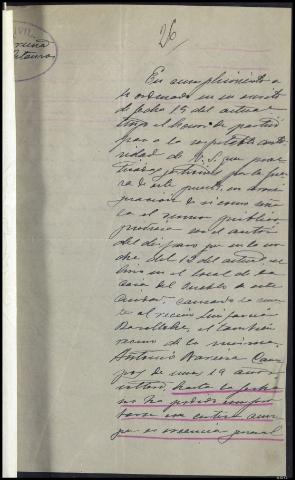 26
En cumplimiento a
lo ordenado en su escrito
de fecha 15 del actual
tengo el honor de partici
par a la respetable auto
ridad de V.S. que prac
ticadas gestiones por la fuer
za de este puesto, en averi
guacion de si como
el rumor público
el autor
del disparo que en la no
che del 13 del actual, se
hizo en el local de la
Casa del Pueblo de esta
Ciudad, causando la muer
te al vecino
el tambien
vecino de la misma
Antonio Cam
pos de unos 19 años
hasta la fecha
no ha podido compro
barse con certeza aun
que es creencia general